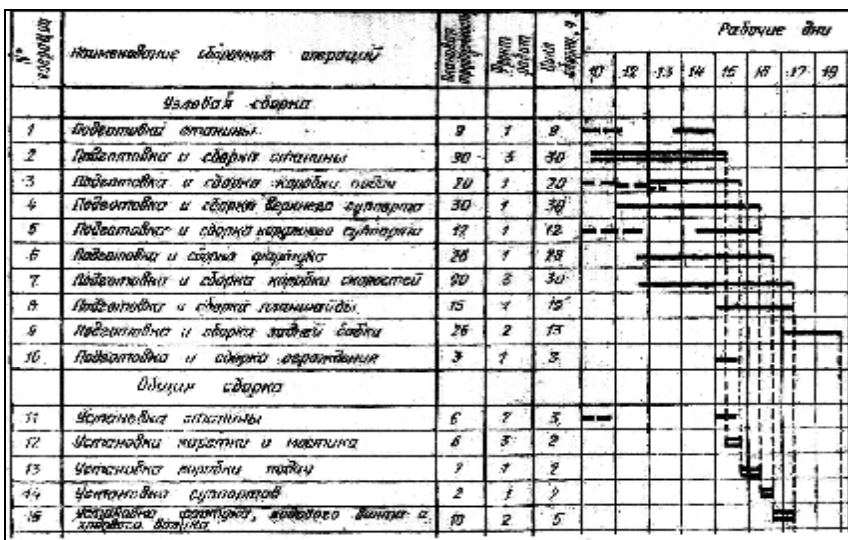 № операции Наименование сборочных операций Плановая Фронт работ Цикл сборки, ч Рабочие дни
10 12 13 14 15 16 17 19
Узловая сборка
1 Подготовка станины 9 1 9
2 Подготовка и сборка станины 90 3 30
3 Подготовка и сборка коробки подач 20 1 20
4 Подготовка и сборка верхнего суппорта 30 1 30
5 Подготовка и сборка суппорта 12 1 12
6 Подготовка и сборка фартука 28 1 28
7 Подготовка и сборка коробки скоростей 90 3 30
8 Подготовка и сборка планшайбы 15 1 15
9 Подготовка и сборка задней бабки 26 2 13
10 Подготовка и сборка ограждения 3 1 3
Общая сборка
11 Установка станины 6 2 3
12 Установка каретки и мостика 6 3 2
13 Установка коробки подач 2 1 2
14 Установка суппортов 2 1 2
15 Установка фартука, ходового винта и
ходового валика 10 2 5